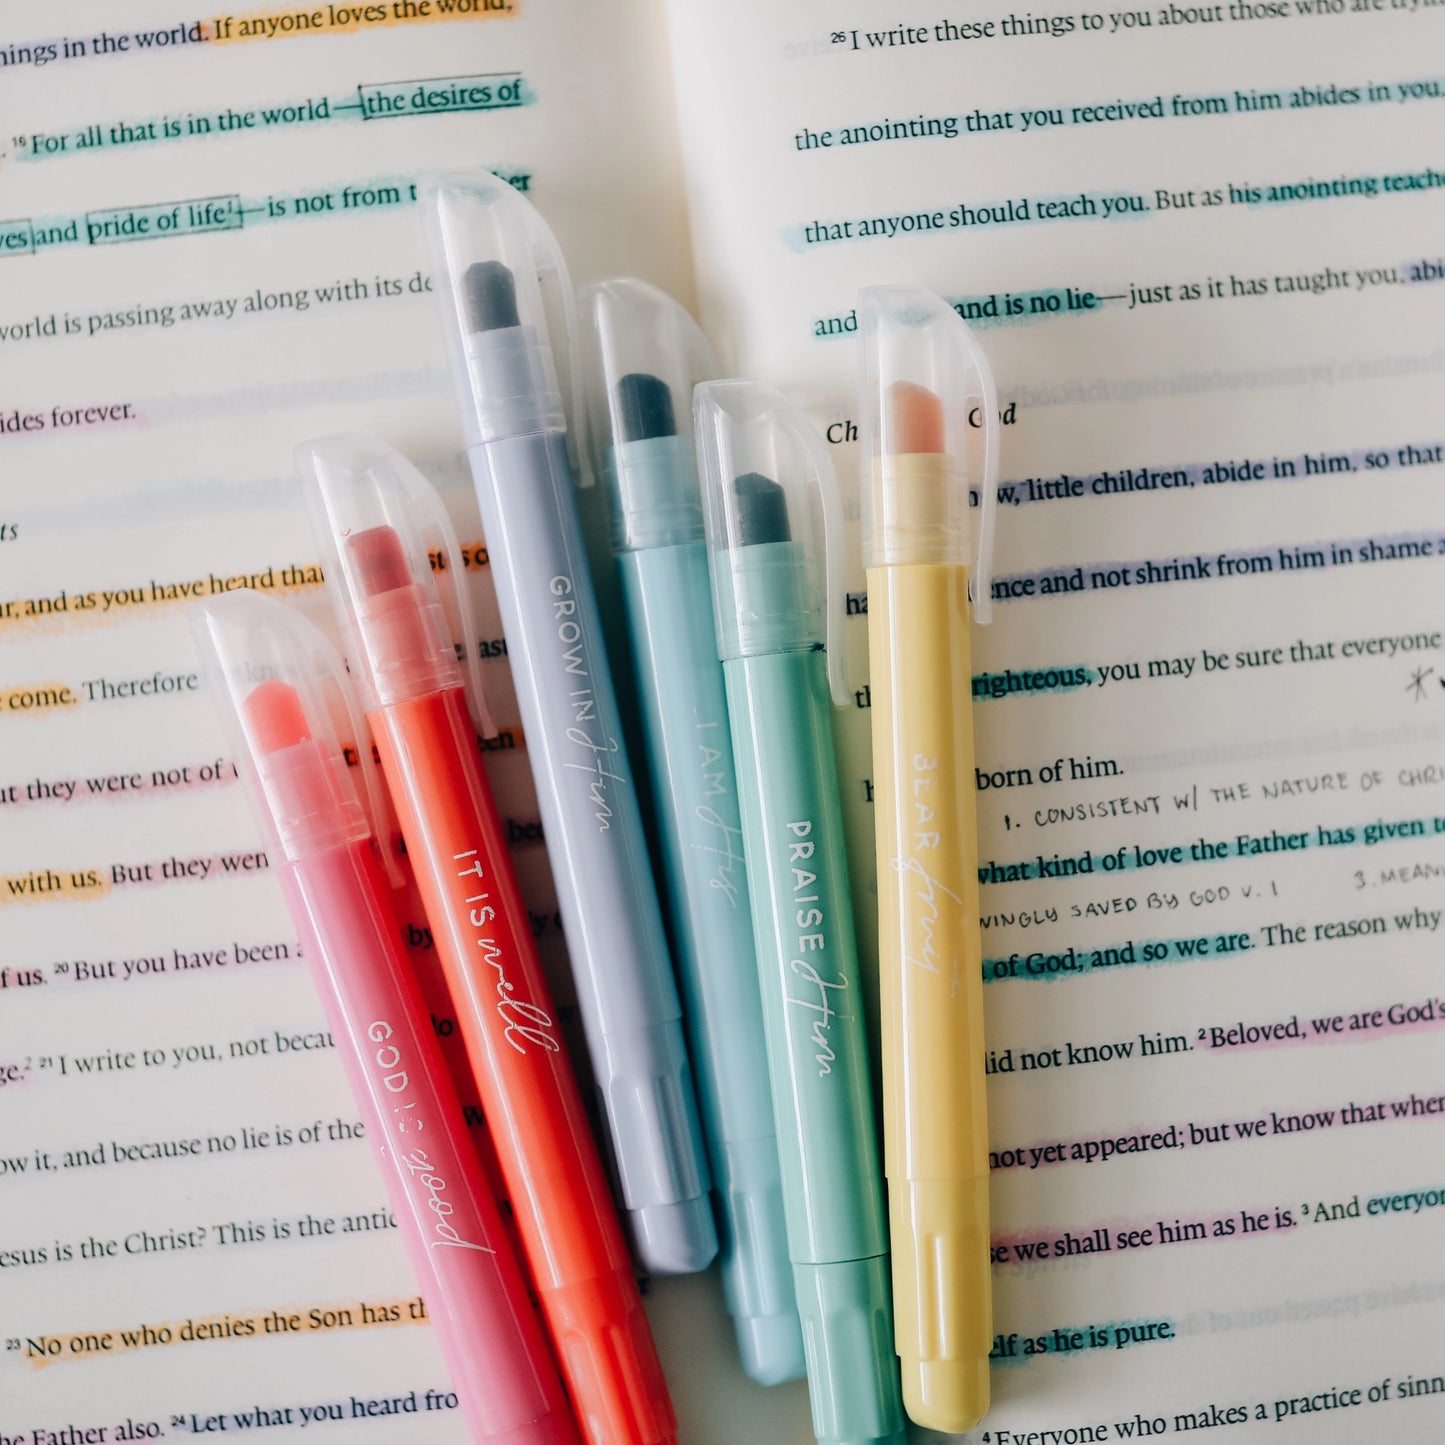 things in the world. If anyone loves the world,
16 For all that is in the world—the desires of
and pride of life¹—is not from t
world is passing away along with its de
ides forever.
and as you have heard that
come. Therefore
but they were not of
with us. But they wen
of us. 20 But you have been
21 I write to you, not becau
ow it, and because no lie is of the
Jesus is the Christ? This is the antic
23 No one who denies the Son has th
the Father also. 24 Let what you heard fro
GOD IS good
IT IS well
GROW IN Him
I AM His
PRAISE Him
BEAR fruit
26 I write these things to you about those who are
the anointing that you received from him abides in you.
that anyone should teach you. But as his anointing teache
and is no lie—just as it has taught you, abi
God
little children, abide in him, so that
and not shrink from him in shame
righteous, you may be sure that everyone
born of him.
1. CONSISTENT W/ THE NATURE OF CHRI
what kind of love the Father has given to
SAVED BY GOD V. 1
3. MEAN
of God; and so we are. The reason why
did not know him. 2 Beloved, we are God's
not yet appeared; but we know that when
we shall see him as he is. 3 And everyon
as he is pure.
4 Everyone who makes a practice of sinn